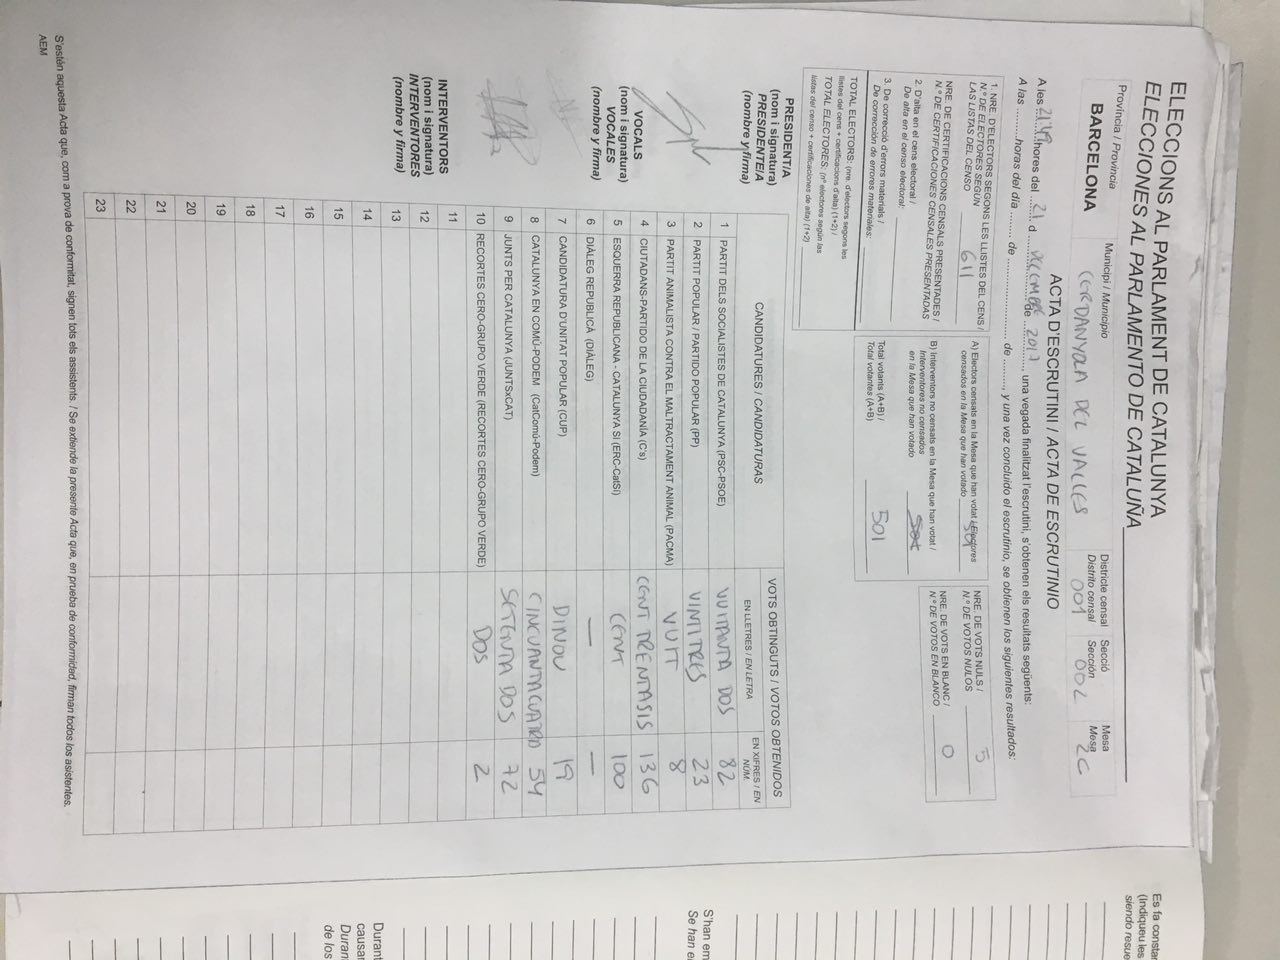 ELECCIONS AL PARLAMENT DE CATALUNYA
ELECCIONES AL PARLAMENTO DE CATALUÑA
Província / Provincia
BARCELONA
Municipi / Municipio
CERDANYOLA DEL VALLES
Districte censal
Distrito censal
001
Secció
Sección
002
Mesa
Mesa
2C
ACTA D'ESCRUTINI / ACTA DE ESCRUTINIO
A les 21:49 hores del 21 d DECEMBRE de 2017, una vegada finalitzat l'escrutini, s'obtenen els resultats següents:
A las ..........horas del día ........ de ........................ de ........, y una vez concluido el escrutinio, se obtienen los siguientes resultados:
1. NRE. D'ELECTORS SEGONS LES LLISTES DEL CENS /
N.º DE ELECTORES SEGÚN
LAS LISTAS DEL CENSO 611
NRE. DE CERTIFICACIONS CENSALS PRESENTADES /
N.º DE CERTIFICACIONES CENSALES PRESENTADAS
2. D'alta en el cens electoral /
De alta en el censo electoral:
3. De correcció d'errors materials /
De corrección de errores materiales:
TOTAL ELECTORS: (nre. d'electors segons les
llistes del cens + certificacions d'alta) (1+2) /
TOTAL ELECTORES: (nº electores según las
listas del censo + certificaciones de alta) (1+2)
A) Electors censats en la Mesa que han votat / Electores
censados en la Mesa que han votado 501
B) Interventors no censats en la Mesa que han votat /
Interventores no censados
en la Mesa que han votado
Total votants (A+B) /
Total votantes (A+B) 501
NRE. DE VOTS NULS /
N.º DE VOTOS NULOS 5
NRE. DE VOTS EN BLANC /
N.º DE VOTOS EN BLANCO 0
PRESIDENT/A
(nom i signatura)
PRESIDENTE/A
(nombre y firma)
VOCALS
(nom i signatura)
VOCALES
(nombre y firma)
INTERVENTORS
(nom i signatura)
INTERVENTORES
(nombre y firma)
CANDIDATURES / CANDIDATURAS
VOTS OBTINGUTS / VOTOS OBTENIDOS
EN LLETRES / EN LETRA
EN XIFRES / EN NÚM.
1 PARTIT DELS SOCIALISTES DE CATALUNYA (PSC-PSOE) VUITANTA DOS 82
2 PARTIT POPULAR / PARTIDO POPULAR (PP) VINTITRES 23
3 PARTIT ANIMALISTA CONTRA EL MALTRACTAMENT ANIMAL (PACMA) VUIT 8
4 CIUTADANS-PARTIDO DE LA CIUDADANÍA (C's) CENT TRENTASIS 136
5 ESQUERRA REPUBLICANA - CATALUNYA SÍ (ERC-CatSí) CENT 100
6 DIÀLEG REPUBLICÀ (DIÀLEG) — —
7 CANDIDATURA D'UNITAT POPULAR (CUP) DINOU 19
8 CATALUNYA EN COMÚ-PODEM (CatComú-Podem) CINCUANTACUATRO 54
9 JUNTS PER CATALUNYA (JUNTSxCAT) SETENTA DOS 72
10 RECORTES CERO-GRUPO VERDE (RECORTES CERO-GRUPO VERDE) DOS 2
11
12
13
14
15
16
17
18
19
20
21
22
23
S'estén aquesta Acta que, com a prova de conformitat, signen tots els assistents. / Se extiende la presente Acta que, en prueba de conformidad, firman todos los asistentes.
AEM
Es fa constar
(Indiqueu les
siendo resue
S'han em
Se han e
Durant
causar
Duran
de los